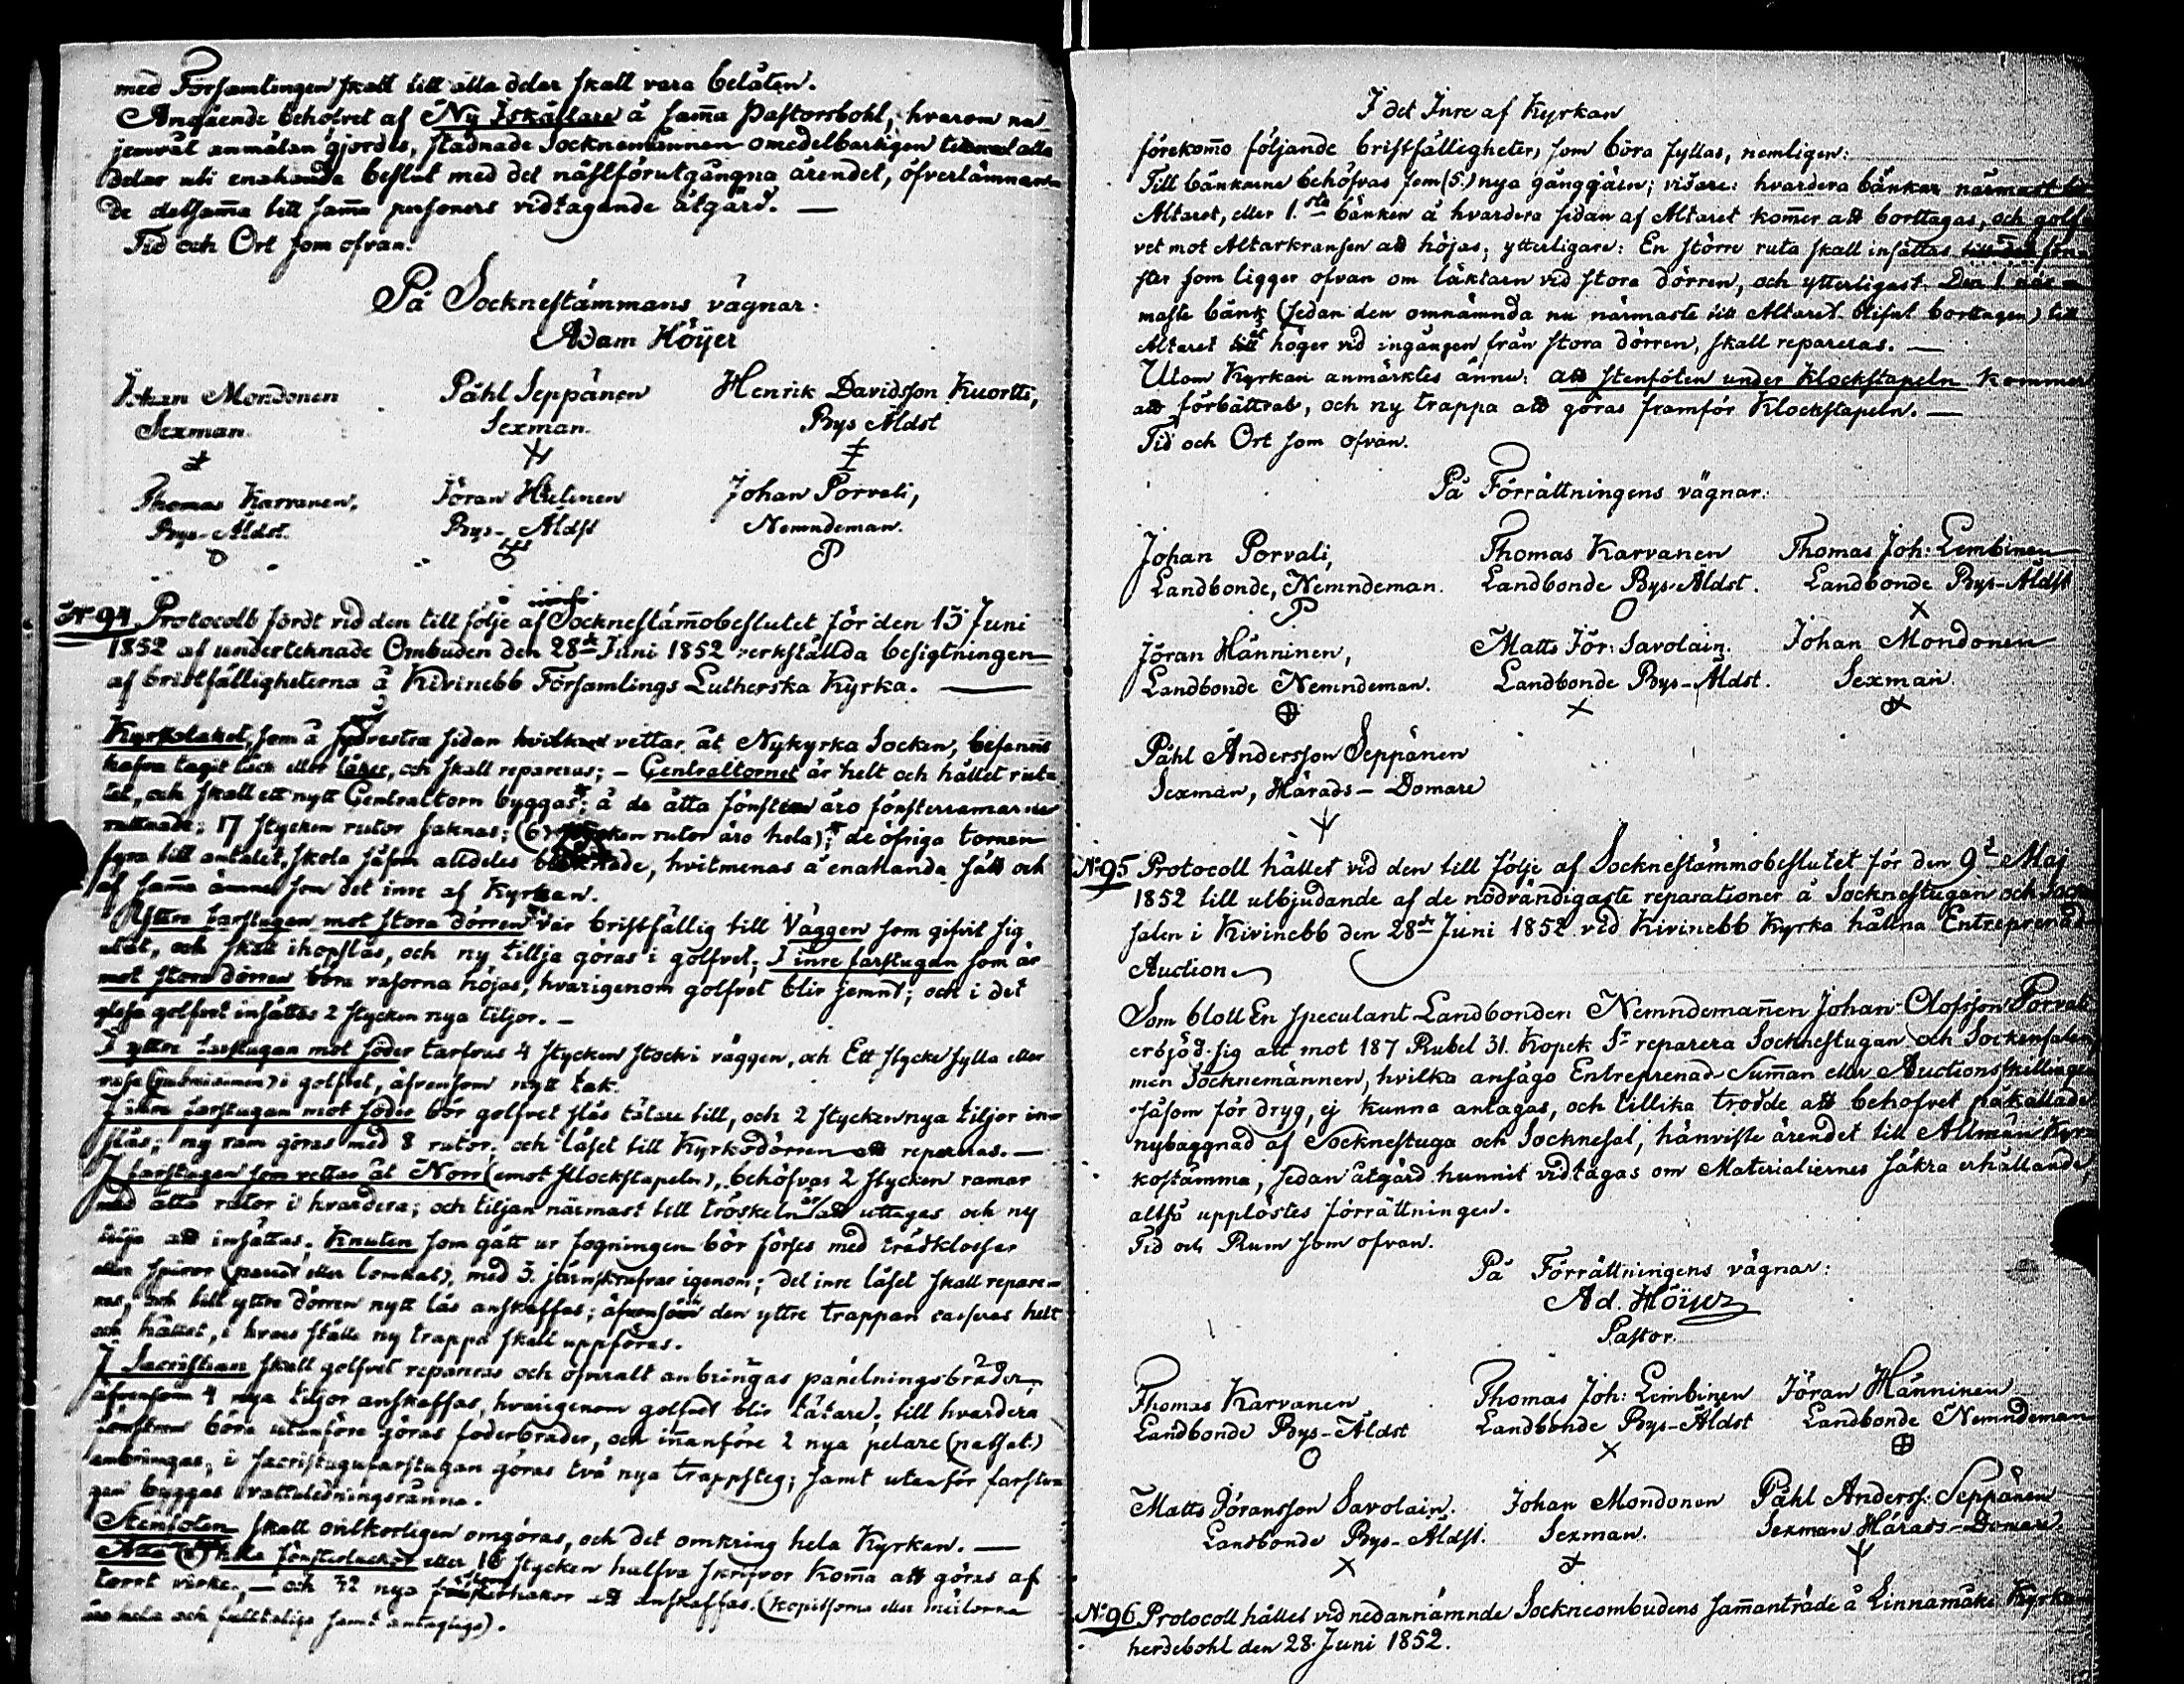 med Församlingen skall till alla delar skall vara belåten.
Angående behofvet af Ny Iskällare å samma Pastorsbohl, hvarom nu
jemväl anmälan gjordes, stadnade Socknemännen omedelbarligen till alla
delar uti enahanda beslut med det nästförutgångna ärendet, öfverlämnan-
de detsamma till samma personers vidtagande åtgärd. —
Tid och Ort som ofvan.
På Socknestämmans vägnar:
Adam Höijer
Johan Mondonen
Påhl Seppänen
Henrik Davidsson Kuortti,
Sexman.
Sexman.
Bys Äldst
Thomas Karvanen,
Jöran Hielmen
Johan Porvali,
Bys-Äldst.
Bys-Äldst
Nemndeman.
N:o 94. Protocoll fördt vid den till följe af Socknestämobeslutet för den 13 Juni
1852 af undertecknade Ombuden den 28de Juni 1852 verkställda besigtningen
af bristfälligheterna å Kivinebb Församlings Lutherska Kyrka. —
Kyrkotaket, som å sydvestra sidan vettar åt Nykyrka Socken, befanns
hafva tagit läck eller läker, och skall repareras; — Centraltornet är helt och hållet rutt-
tet, och skall ett nytt Centraltorn byggas; å de åtta fönstren äro fönsterramarne
ruttnade; 17 stycken rutor saknas; (6 stycken rutor äro hela); de öfriga tornen
fyra till antalet, skola såsom alldeles bleknade, hvitmenas å enahanda sätt och
af samma ämne som det inre af Kyrkan.
Yttre farstugan mot stora dörren var bristfällig till Väggen som gifvit sig
utåt, och skall ihopslås, och ny tillja göras i golfvet; I inre farstugan som är
mot stora dörren böra vasorna höjas, hvarigenom golfvet blir jemnt; och i det
glesa golfvet insättas 2 stycken nya tiljor. —
I yttre farstugan mot söder tarfvas 4 stycken stock i väggen, och Ett stycke sylla eller
vasa i golfvet, äfvensom nytt tak.
I inre farstugan mot söder bör golfvet slås tätare till, och 2 stycken nya tiljor in-
slås; ny ram göras med 8 rutor; och låset till Kyrkodörren att repareras. —
I farstugan som vettar åt Norr (emot Klockstapeln), behöfvas 2 stycken ramar
med åtta rutor i hvardera; och tiljan närmast till tröskeln är att uttagas och ny
tilja att insättas; Knuten som gått ur fogningen bör förses med trädklossar
eller spiror, med 3. järnskrufvar igenom; det inre låset skall repare-
ras, och till yttre dörren nytt lås anskaffas; äfvensom den yttre trappan casseras helt
och hållet, i hvars ställe ny trappa skall uppföras.
I Sacristian skall golfvet repareras och ofvanalt anbringas panelningsbräder,
äfvensom 4 nya tiljor anskaffas, hvarigenom golfvet blir tätare; till hvardera
fönstren böra utanföre göras foderbräder, och innanföre 2 nya pelare (patsat)
anbringas; i sacristugufarstugan göras två nya trappsteg; samt utanför farstu-
gan byggas vattuledningsränna.
Stenfoten skall ovilkorligen omgöras, och det omkring hela Kyrkan. —
Åtta (8) hela fönsterluckor eller 16 stycken halfva skrifvor komma att göras af
torrt virke, — och 32 nya fönsterhakor att anskaffas.
äro hela och fulltaliga samt antagliga).
I det Inre af Kyrkan
förekomo följande bristfälligheter, som böra fyllas, nemligen:
Till bänkarne behöfvas fem (5) nya gånggjärn; vidare: hvardera bänkar närmast till
Altaret, eller 1.sta bänken å hvardera sidan af Altaret kommer att borttagas, och golf-
vet mot Altarkransen att höjas; ytterligare: En större ruta skall insättas fön-
ster som ligger ofvan om läktarn vid stora dörren, och ytterligast. Den 1 när-
maste bänk (sedan den omnämnda nu närmaste till Altaret blifvit borttagen) till
Altaret åt höger vid ingången från stora dörren, skall repareras. —
Utom Kyrkan anmärktes ännu: att stenfoten under Klockstapeln kommer
att förbättras, och ny trappa att göras framför Klockstapeln. —
Tid och Ort som ofvan.
På Förrättningens vägnar:
Johan Porvali,
Thomas Karvanen
Thomas Joh: Lembinen
Landbonde, Nemndeman.
Landbonde Bys-Äldst.
Landbonde Bys-Äldst
Jöran Hänninen,
Matts Jör: Savolain.
Johan Mondonen
Landbonde Nemndeman.
Landbonde Bys-Äldst.
Sexman.
Påhl Andersson Seppänen
Sexman, Härads-Domare
N:o 95 Protocoll hållet vid den till följe af Socknestämmobeslutet för den 9de Maj
1852 till utbjudande af de nödvändigaste reparationer å Socknestugan och Sockne-
salen i Kivinebb den 28de Juni 1852 vid Kivinebb Kyrka hållna Entreprenad
Auction.
Som blott En speculant Landbonden Nemndemannen Johan Olofsson Porvali
erbjöd sig att mot 187 Rubel 31. Kopek Sr reparera Socknestugan och Sockensalen,
men Socknemännen, hvilka ansågo Entreprenad Summan eller Auctionsskillingen
såsom för dryg, ej kunna antagas, och tillika trodde att behofvet påkallade
nybyggnad af Socknestuga och Socknesal, hänviste ärendet till Allmän Kyr-
kostämma, sedan åtgärd hunnit vidtagas om Materialiernes säkra erhållande,
alltså upplöstes förrättningen.
Tid och Rum som ofvan.
På Förrättningens vägnar:
Ad. Höijer
Pastor.
Thomas Karvanen
Thomas Joh: Lembinen
Jöran Hänninen
Landbonde Bys-Äldst
Landbonde Bys-Äldst
Landbonde Nemndeman
Matts Jöransson Savolain.
Johan Mondonen
Påhl Anderss: Seppänen
Landbonde Bys-Äldst.
Sexman.
Sexman Härads-Domare
N:o 96 Protocoll hållet vid nedannämnde Sockneombudens sammanträde å Linnamäki Kyrko-
herdebohl den 28. Juni 1852.